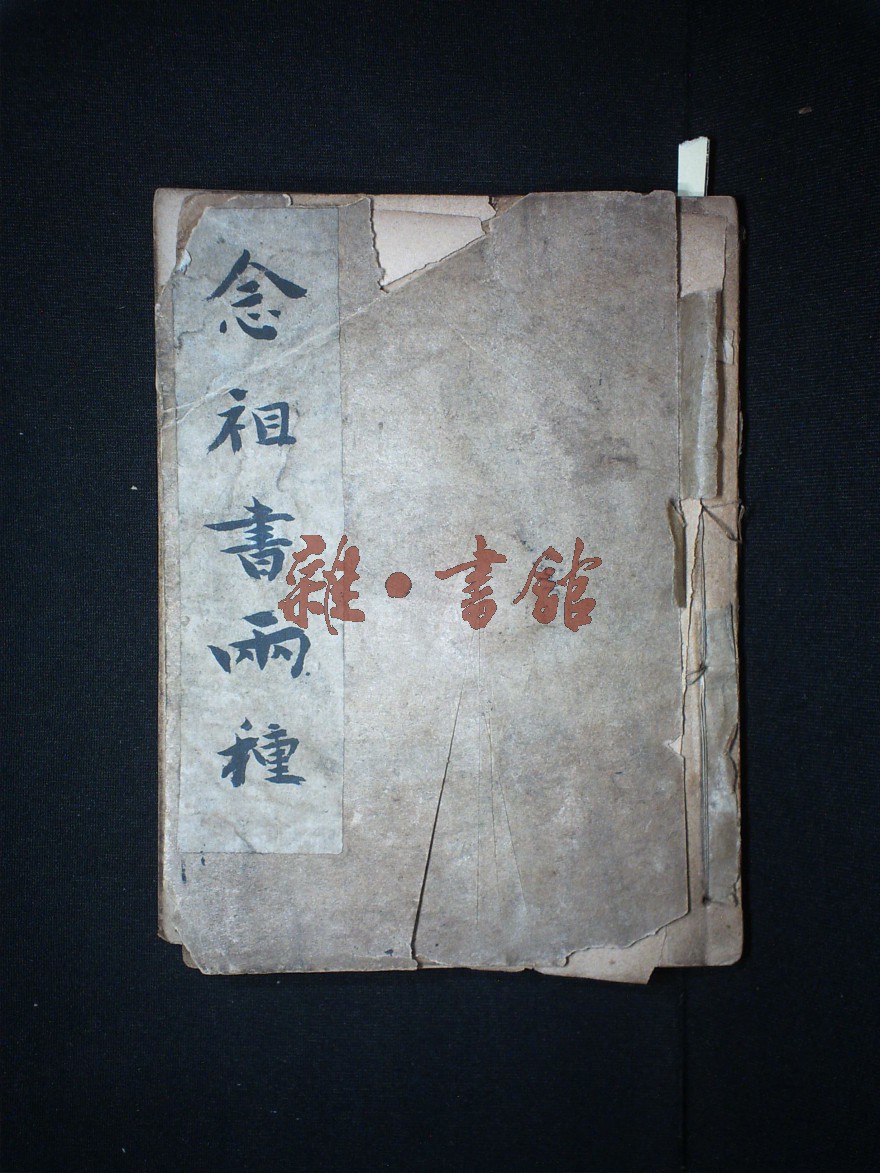 念祖書兩種
雜·書館